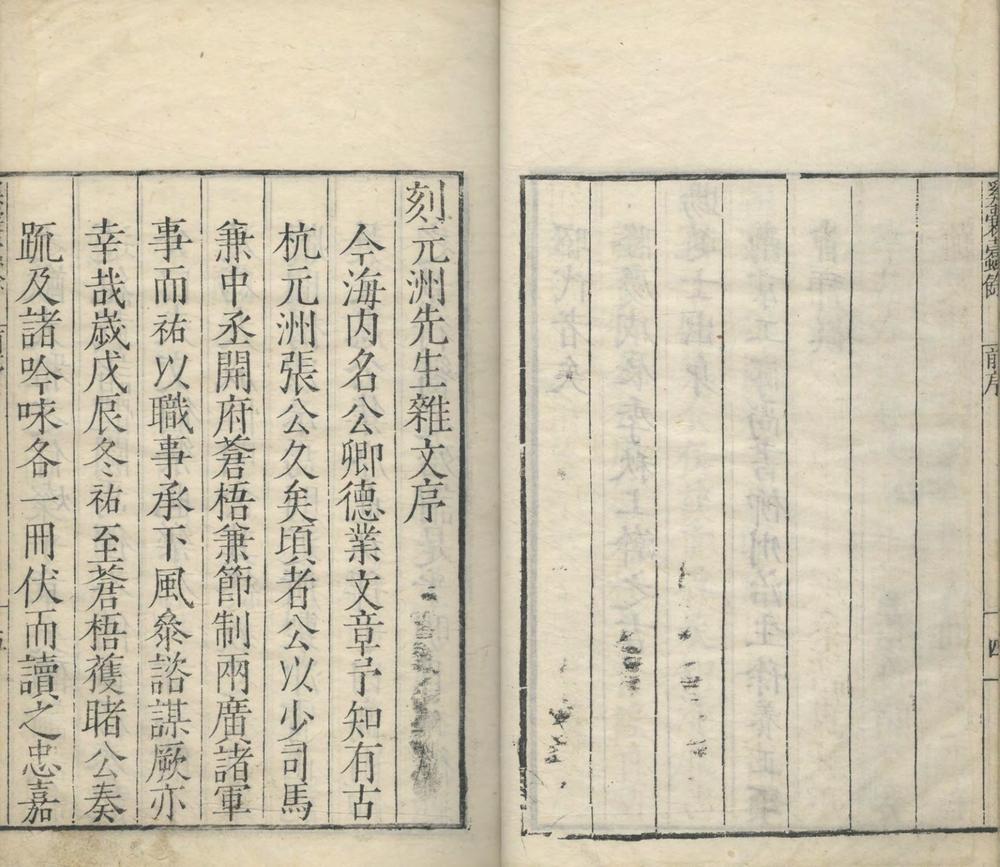 前序
四
刻元洲先生雜文序
今海内名公卿德業文章予知有古
杭元洲張公久矣頃者公以少司馬
兼中丞開府蒼梧兼節制兩廣諸軍
事而祐以職事承下風叅諮謀厥亦
幸哉歳戊辰冬祐至蒼梧獲睹公奏
疏及諸吟咏各一冊伏而讀之忠嘉